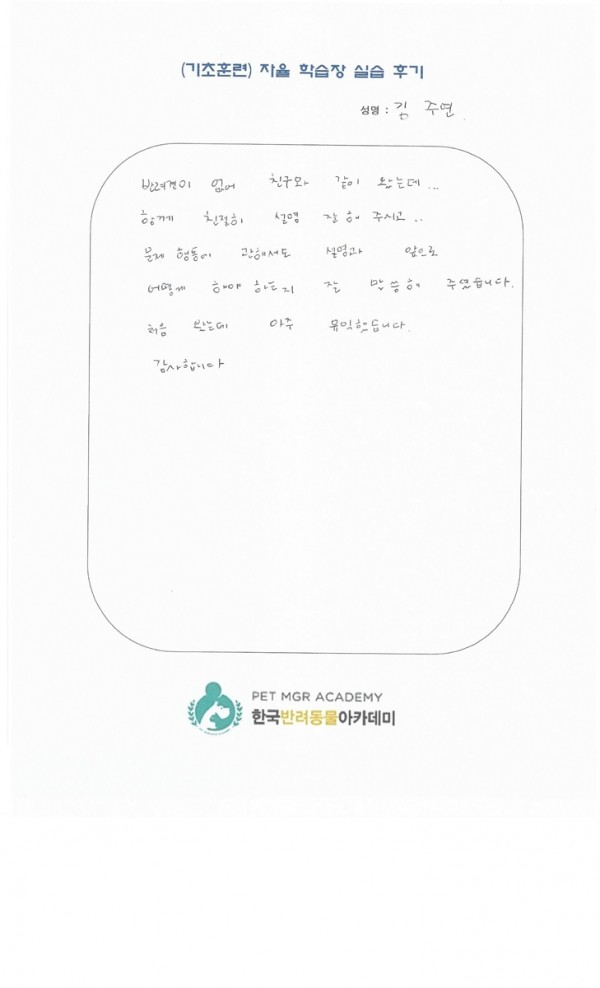 (기초훈련) 자율 학습장 실습 후기
성명 : 김 주연
반려견이 없어 친구와 같이 왔는데...
함께 친절히 설명 잘 해 주시고..
문제 행동에 관해서도 설명과 앞으로
어떻게 해야 하는지 잘 말씀해 주셨습니다.
처음 봤는데 아주 유익했습니다.
감사합니다
PET MGR ACADEMY
한국반려동물아카데미